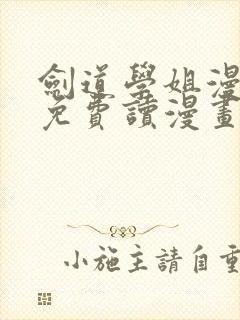 劍道學姐漫
免費讀漫畫
小施主請自重